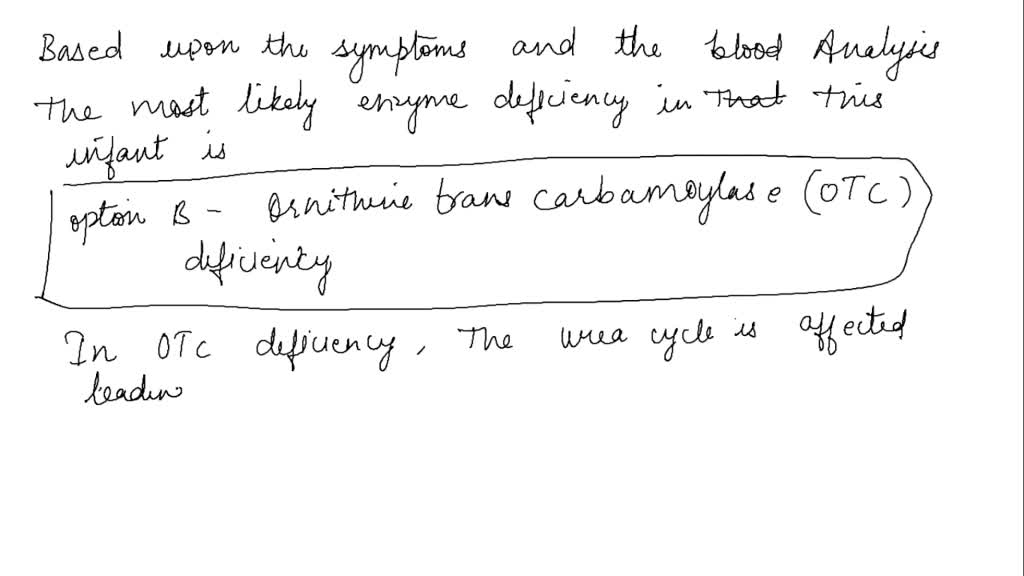 Based upon the symptoms and the blood Analysis
The most likely enzyme deficiency in That this
infant is
option B - Ornithine trans carbamoylase (OTC)
deficiency
In OTC deficiency, The urea cycle is affected
leadin